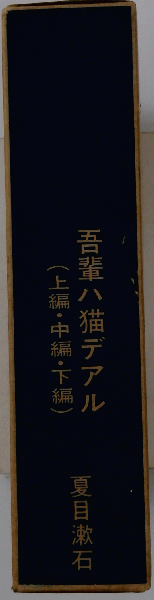 吾輩ハ猫デアル
(上編・中編・下編)
夏目漱石